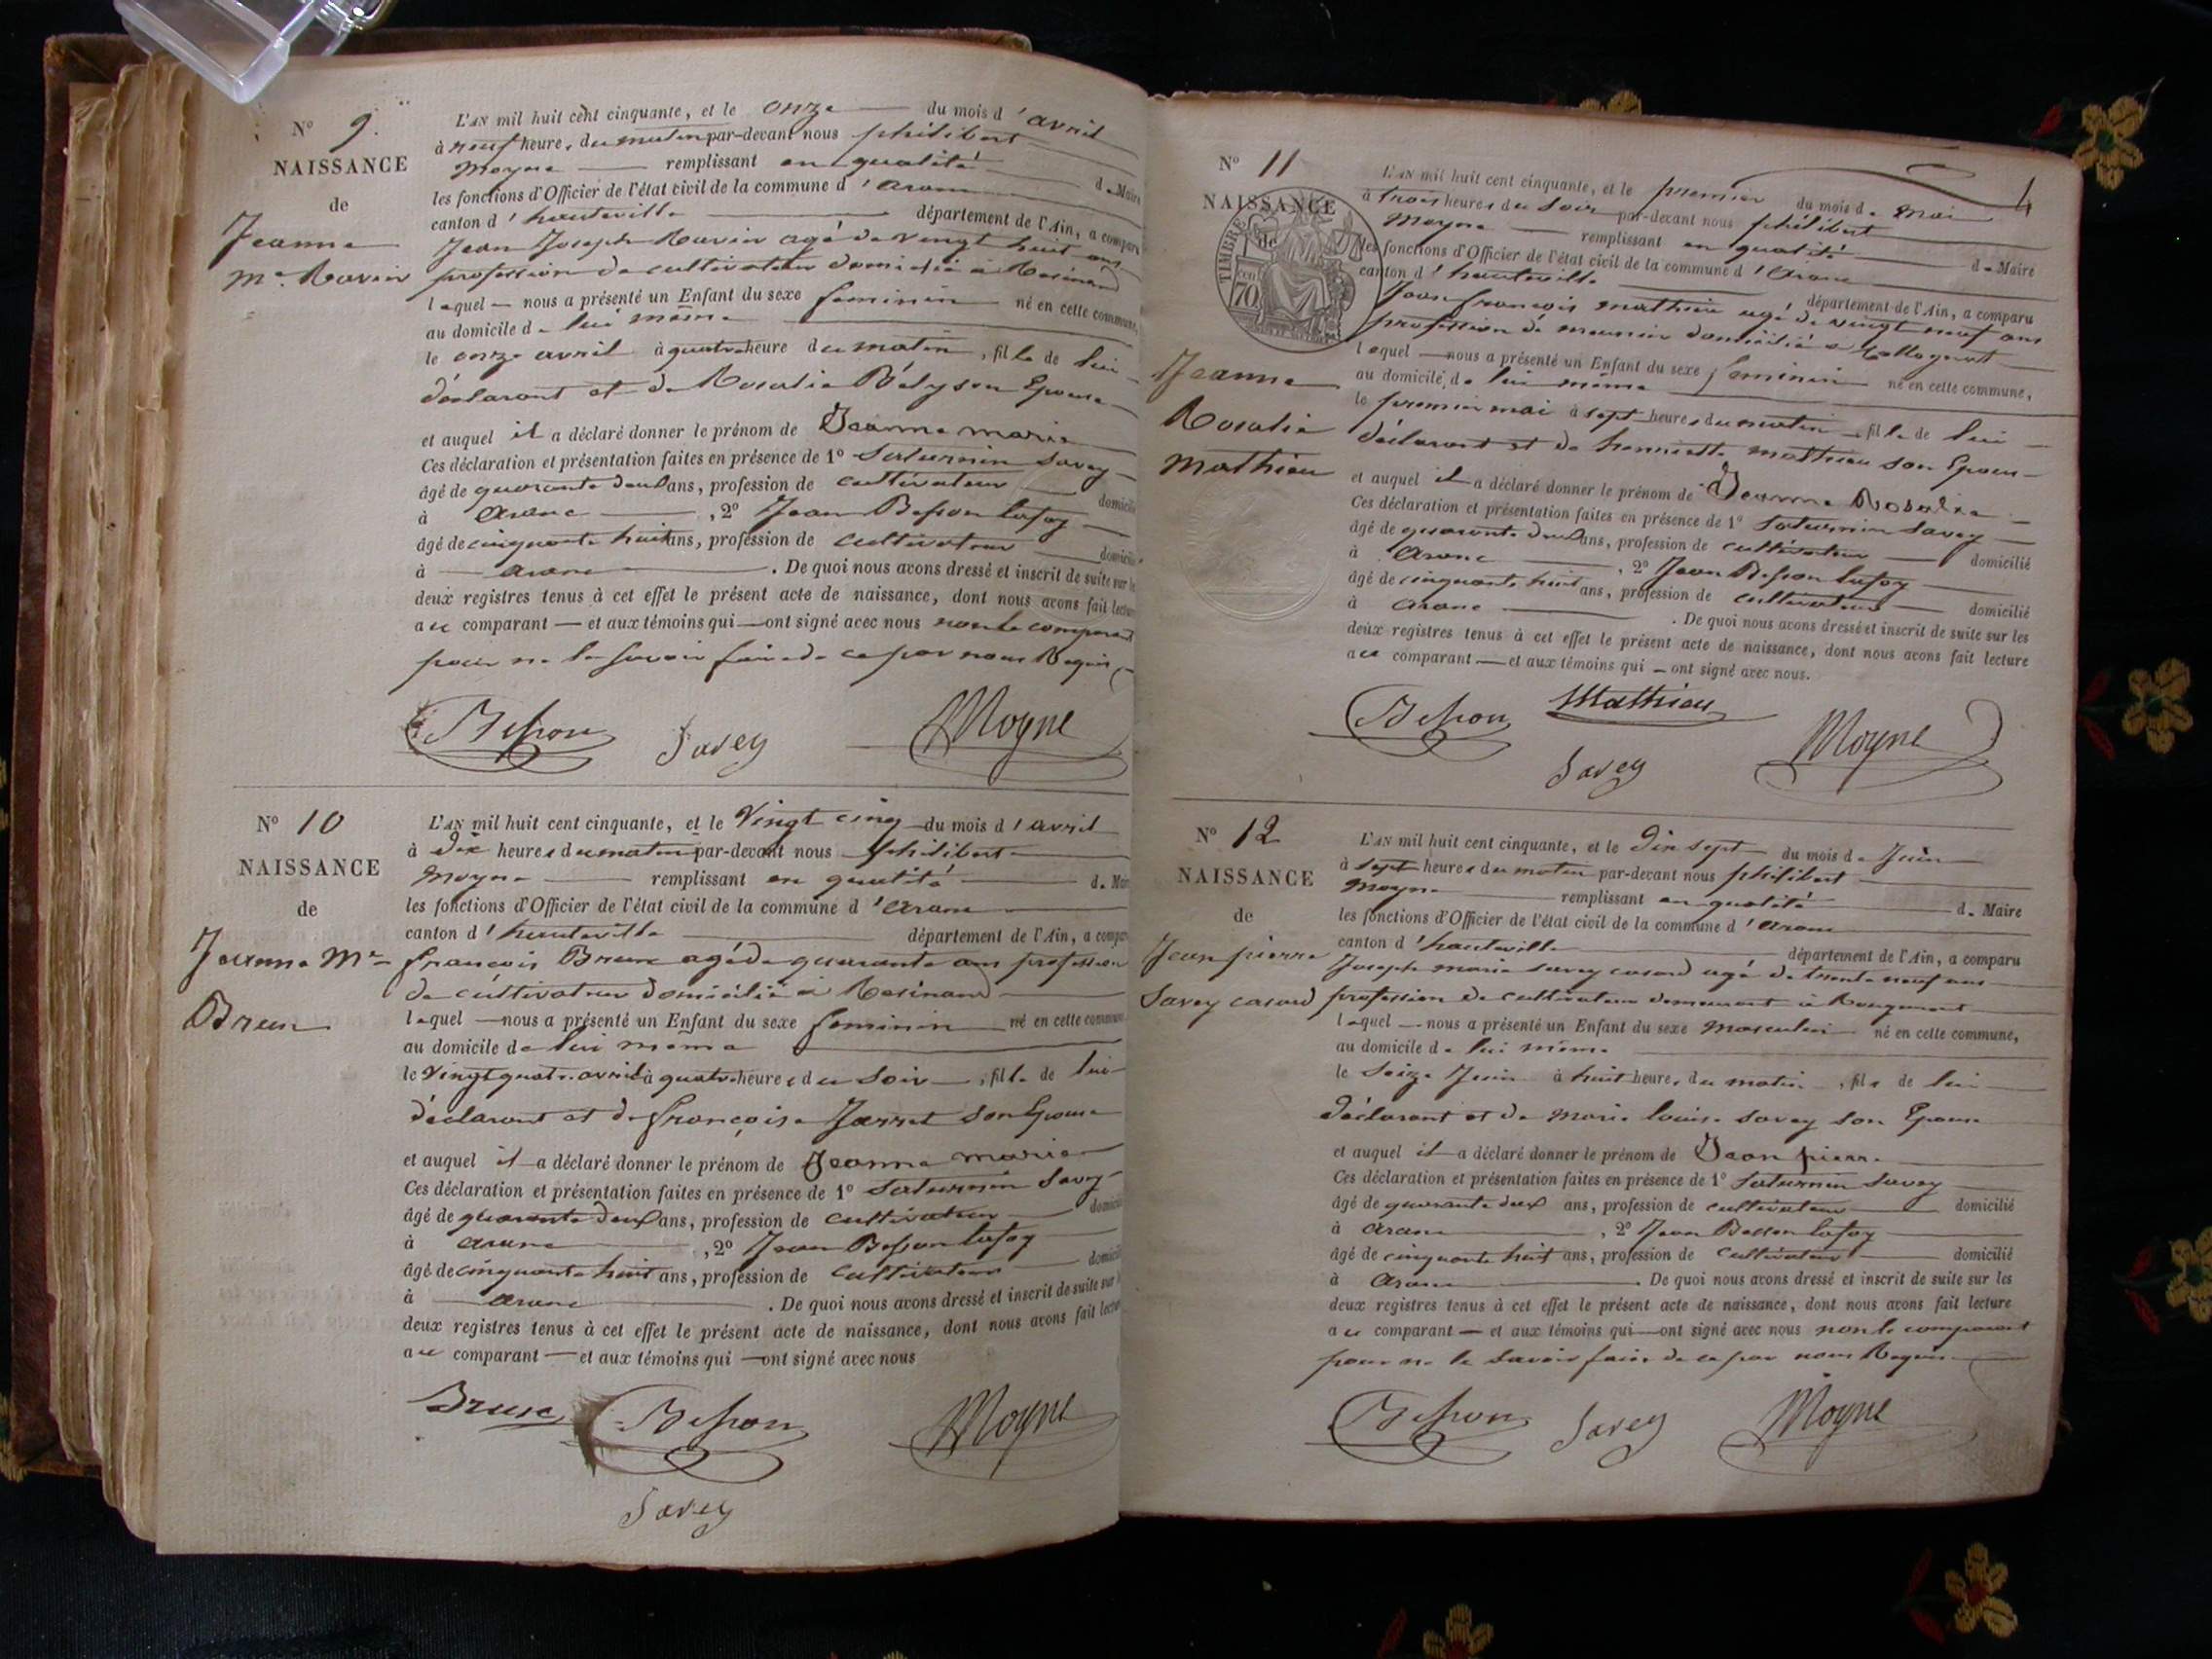 N° 9.
NAISSANCE
de
Jeanne
Me Ravier
L'AN mil huit cent cinquante, et le onze du mois d'avril
à neuf heures du matin par-devant nous philibert
Moyne remplissant en qualité de Maire
les fonctions d'Officier de l'état civil de la commune d'aranc
canton d'hauteville département de l'Ain, a comparu
Jean Joseph Ravier agé de vingt huit ans
profession de cultivateur domicilié à Resinand
lequel nous a présenté un Enfant du sexe feminin né en cette commune,
au domicile de lui même
le onze avril à quatre heure du matin, fille de lui
déclarant et de Rosalie son Epouse
et auquel il a déclaré donner le prénom de Jeanne marie
Ces déclaration et présentation faites en présence de 1° Saturnin Savey
âgé de quarante deux ans, profession de cultivateur domicilié
à Aranc, 2° Jean Besson lafoy
âgé de cinquante huit ans, profession de cultivateur domicilié
à aranc. De quoi nous avons dressé et inscrit de suite sur les
deux registres tenus à cet effet le présent acte de naissance, dont nous avons fait lecture
au comparant et aux témoins qui ont signé avec nous non le comparant
pour ne le savoir faire de ce par nous Requis
Besson Savey Moyne
N° 10
NAISSANCE
de
Jeanne Me
Brun
L'AN mil huit cent cinquante, et le Vingt cinq du mois d'avril
à Dix heures du matin par-devant nous philibert
Moyne remplissant en qualité de Maire
les fonctions d'Officier de l'état civil de la commune d'aranc
canton d'hauteville département de l'Ain, a comparu
francois Brun agé de quarante ans profession
de cultivateur domicilié à Resinand
lequel nous a présenté un Enfant du sexe feminin né en cette commune
au domicile de lui meme
le Vingt quatre avril à quatre heures du Soir, fille de lui
déclarant et de françoise Jarret son Epouse
et auquel il a déclaré donner le prénom de Jeanne marie
Ces déclaration et présentation faites en présence de 1° Saturnin Savey
âgé de quarante deux ans, profession de cultivateur domicilié
à aranc, 2° Jean Besson lafoy
âgé de cinquante huit ans, profession de cultivateur domicilié
à aranc. De quoi nous avons dressé et inscrit de suite sur les
deux registres tenus à cet effet le présent acte de naissance, dont nous avons fait lecture
au comparant et aux témoins qui ont signé avec nous
Brun Besson Moyne
Savey
4
N° 11
NAISSANCE
de
TIMBRE
70
Jeanne
Rosalie
Mathieu
L'AN mil huit cent cinquante, et le premier du mois de Mai
à trois heures du Soir par-devant nous philibert
Moyne remplissant en qualité de Maire
les fonctions d'Officier de l'état civil de la commune d'Aranc
canton d'hauteville département de l'Ain, a comparu
Jean francois mathieu agé de vingt neuf ans
profession de meunier domicilié a
lequel nous a présenté un Enfant du sexe feminin né en cette commune,
au domicile de lui même
le premier mai à sept heures du matin, fille de lui
déclarant et de henriette mathieu son Epouse
et auquel il a déclaré donner le prénom de Jeanne Rosalie
Ces déclaration et présentation faites en présence de 1° Saturnin Savey
âgé de quarante deux ans, profession de cultivateur domicilié
à Aranc, 2° Jean Besson lafoy
âgé de cinquante huit ans, profession de cultivateur domicilié
à aranc. De quoi nous avons dressé et inscrit de suite sur les
deux registres tenus à cet effet le présent acte de naissance, dont nous avons fait lecture
au comparant et aux témoins qui ont signé avec nous.
Besson Mathieu Moyne
Savey
N° 12
NAISSANCE
de
Jean pierre
Savey casard
L'AN mil huit cent cinquante, et le Dix sept du mois de Juin
à sept heures du matin par-devant nous philibert
Moyne remplissant en qualité de Maire
les fonctions d'Officier de l'état civil de la commune d'aranc
canton d'hauteville département de l'Ain, a comparu
Joseph marie savey casard agé de trente neuf ans
profession de cultivateur demeurant à Rougemont
lequel nous a présenté un Enfant du sexe Masculin né en cette commune,
au domicile de lui même
le Seize Juin à huit heures du matin, fils de lui
Déclarant et de Marie louise savey son Epouse
et auquel il a déclaré donner le prénom de Jean pierre
Ces déclaration et présentation faites en présence de 1° Saturnin Savey
âgé de quarante deux ans, profession de cultivateur domicilié
à aranc, 2° Jean Besson lafoy
âgé de cinquante huit ans, profession de cultivateur domicilié
à Aranc. De quoi nous avons dressé et inscrit de suite sur les
deux registres tenus à cet effet le présent acte de naissance, dont nous avons fait lecture
au comparant et aux témoins qui ont signé avec nous non le comparant
pour ne le savoir faire de ce par nous Requis
Besson Savey Moyne